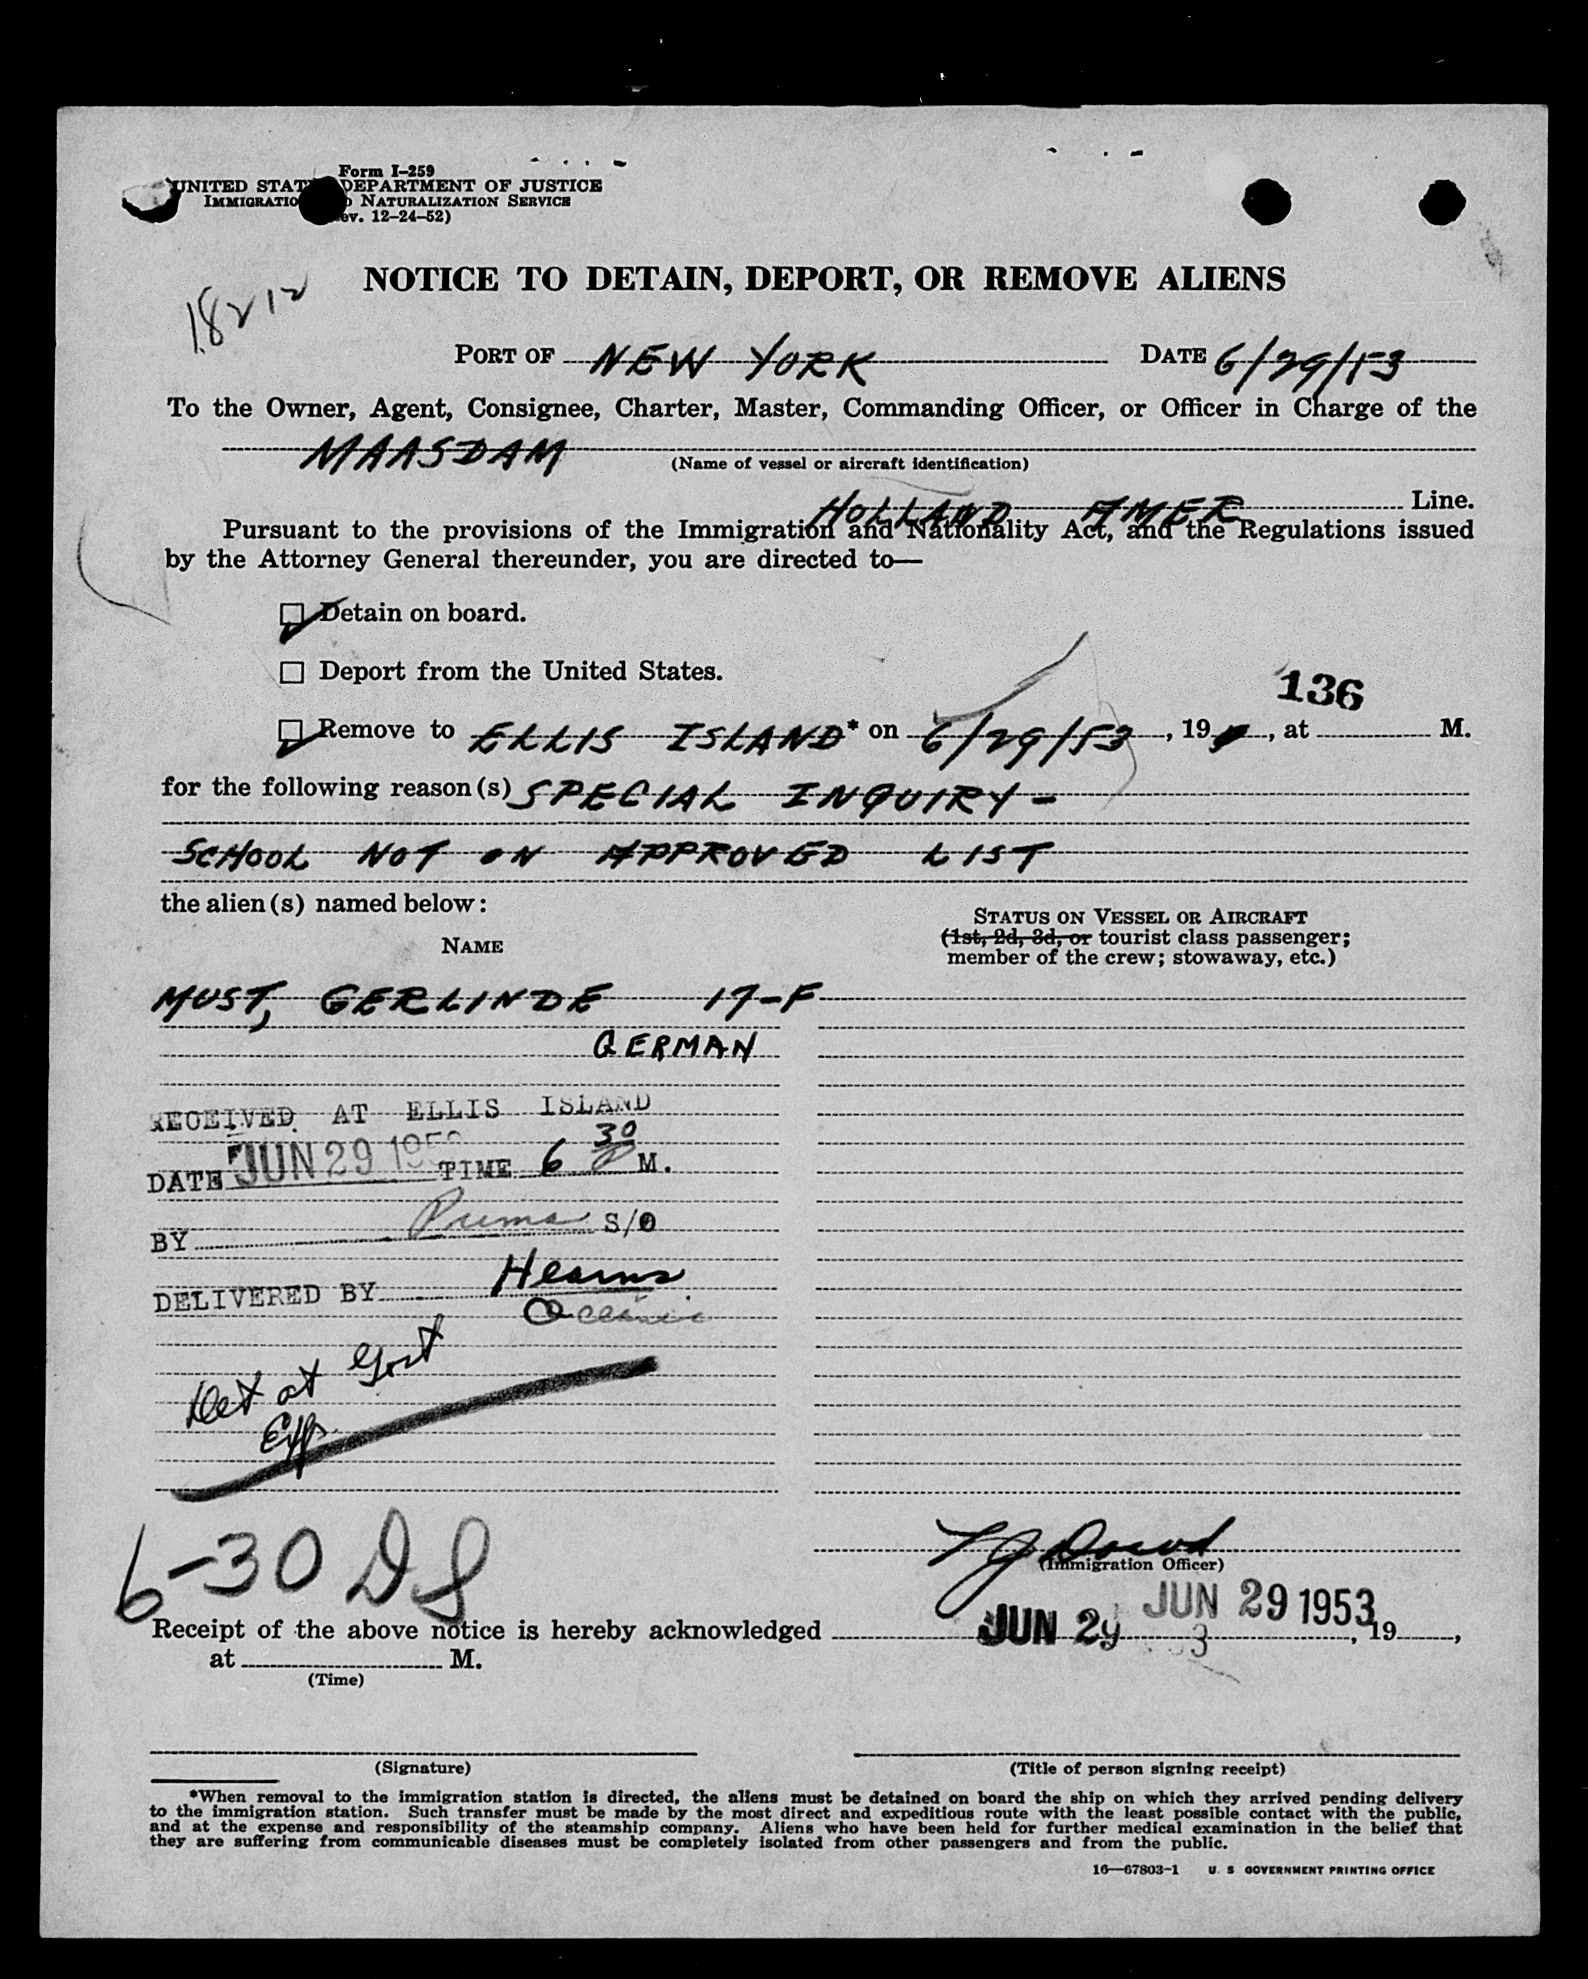 Form I-259
UNITED STAT DEPARTMENT OF JUSTICE
IMMIGRATIO NATURALIZATION SERVICE
ev. 12-24-52)
18212
NOTICE TO DETAIN, DEPORT, OR REMOVE ALIENS
PORT OF NEW YORK DATE 6/29/53
To the Owner, Agent, Consignee, Charter, Master, Commanding Officer, or Officer in Charge of the
MAASDAM
(Name of vessel or aircraft identification)
HOLLAND AMER Line.
Pursuant to the provisions of the Immigration and Nationality Act, and the Regulations issued
by the Attorney General thereunder, you are directed to—
Detain on board.
Deport from the United States.
136
Remove to ELLIS ISLAND* on 6/29/53, 19, at M.
for the following reason(s) SPECIAL INQUIRY-
SCHOOL NOT ON APPROVED LIST
the alien(s) named below:
STATUS ON VESSEL OR AIRCRAFT
(1st, 2d, 3d, or tourist class passenger;
NAME
member of the crew; stowaway, etc.)
MUST, GERLINDE 17-F
GERMAN
RECEIVED AT ELLIS ISLAND
DATE JUN 29 195 TIME 6 30 P M.
BY S/O
DELIVERED BY Hearns
Oceanic
Det at Govt
Exp.
6-30 DS
TJ Dowd
(Immigration Officer)
JUN 29 1953
Receipt of the above notice is hereby acknowledged JUN 29 3, 19,
at M.
(Time)
(Signature)
(Title of person signing receipt)
*When removal to the immigration station is directed, the aliens must be detained on board the ship on which they arrived pending delivery
to the immigration station. Such transfer must be made by the most direct and expeditious route with the least possible contact with the public,
and at the expense and responsibility of the steamship company. Aliens who have been held for further medical examination in the belief that
they are suffering from communicable diseases must be completely isolated from other passengers and from the public.
16—67803-1 U. S. GOVERNMENT PRINTING OFFICE